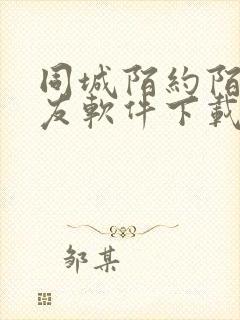 同城陌約陌
友軟件下載
邹某